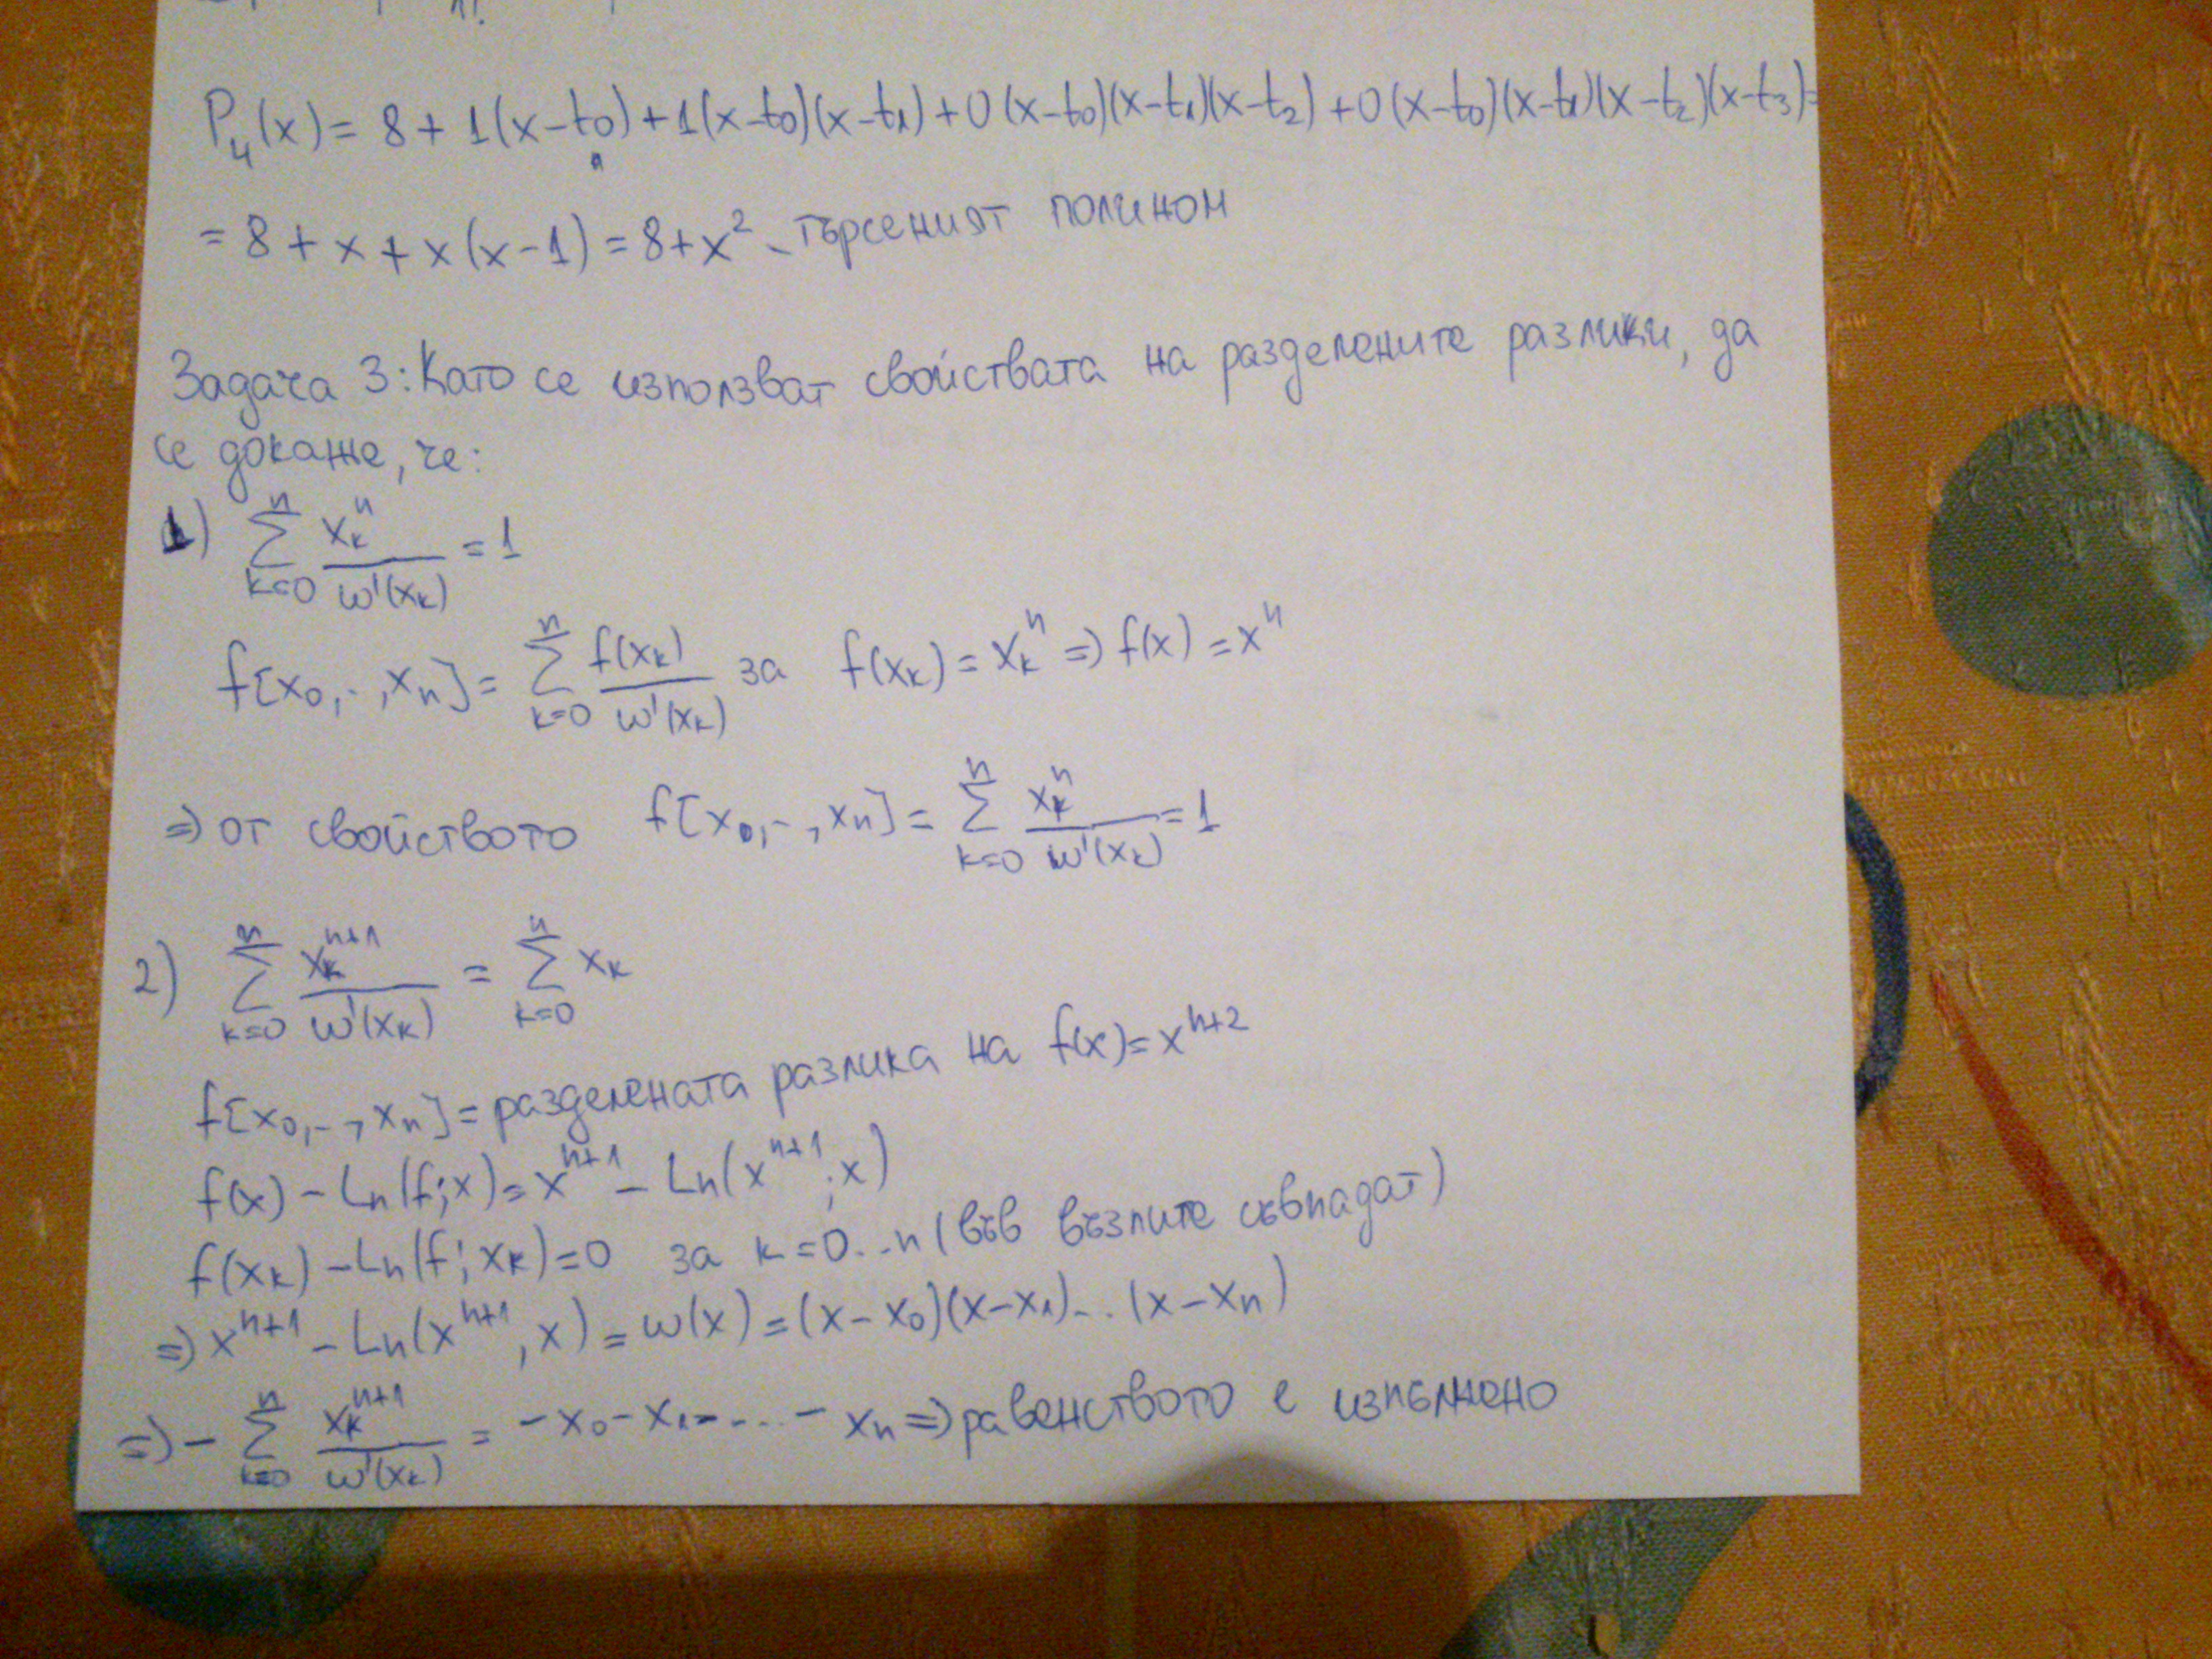 P₄(x) = 8 + 1(x-t₀) + 1(x-t₀)(x-t₁) + 0(x-t₀)(x-t₁)(x-t₂) + 0(x-t₀)(x-t₁)(x-t₂)(x-t₃) =
= 8 + x + x(x-1) = 8 + x² - търсеният полином
Задача 3: Като се използват свойствата на разделените разлики, да
се докаже, че:
1) ∑_{k=0}^{n} x_k^n / ω'(x_k) = 1
f[x₀, .. , x_n] = ∑_{k=0}^{n} f(x_k) / ω'(x_k) за f(x_k) = x_k^n => f(x) = x^n
=> от свойството f[x₀, .. , x_n] = ∑_{k=0}^{n} x_k^n / ω'(x_k) = 1
2) ∑_{k=0}^{n} x_k^{n+1} / ω'(x_k) = ∑_{k=0}^{n} x_k
f[x₀, .. , x_n] = разделената разлика на f(x) = x^{n+2}
f(x) - Ln(f; x) = x^{n+1} - Ln(x^{n+1}; x)
f(x_k) - Ln(f; x_k) = 0 за k = 0...n (във възлите съвпадат)
=> x^{n+1} - Ln(x^{n+1}, x) = ω(x) = (x-x₀)(x-x₁)...(x-x_n)
=> - ∑_{k=0}^{n} x_k^{n+1} / ω'(x_k) = -x₀ - x₁ - ... - x_n => равенството е изпълнено